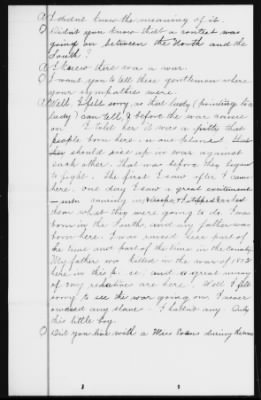 A I didn't know the meaning of it.
Q Didn't you know that a contest was
going on between the North and the
South?
A I knew there was a war.
Q I want you to tell these gentlemen where
your sympathies were.
A Well, I felt sorry, as that lady (pointing to a
lady) can tell, before the war came
on. I told her it was a pity that
people born here in one
should rise up in war against
each other. That was before they began
to fight. The first I saw after I came
here, one day I saw a great excitement
— men running in and I asked
them what they were going to do. I was
born in the South, and my father was
born here. I was raised here part of
the time and part of the time in the country.
My father was killed in the war of 1812
here in this place, and a great many
of my relatives are here. Well I felt
sorry to see the war going on. I never
owned any slave — I hadn't any. Only
this little boy.
Q Did you live with a Miss Evans during the war